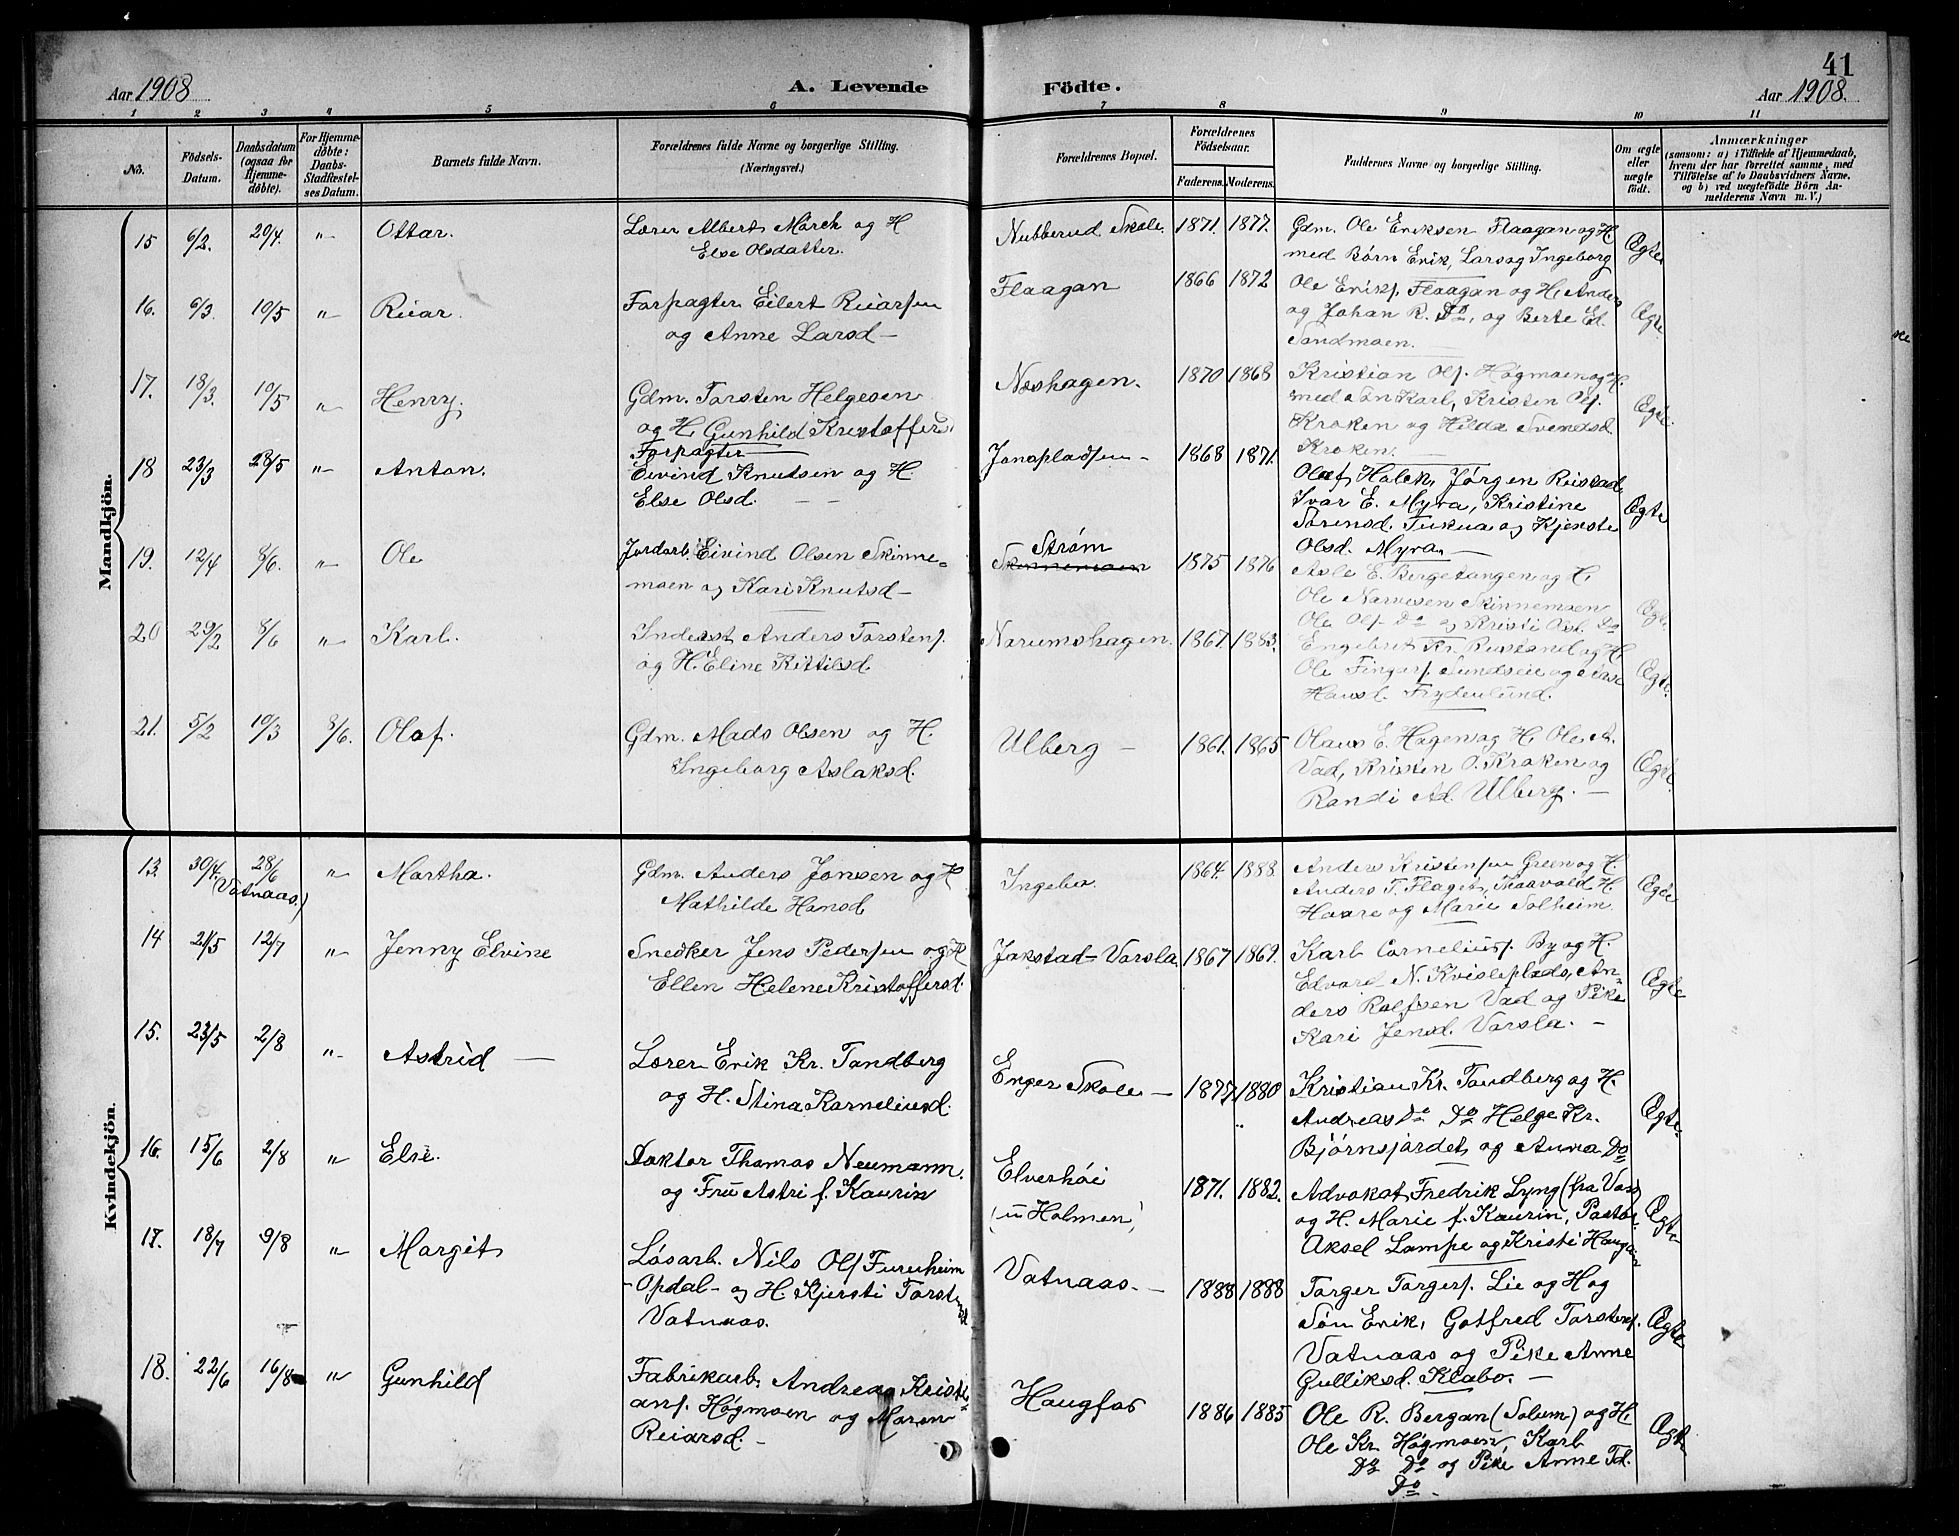 41
Aar 1908
A. Levende Födte.
Aar 1908.
1 2 3 4 5 6 7 8 9 10 11
No.
Födsels-Datum.
Daabsdatum (ogsaa for Hjemme-döbte).
For Hjemme-döbte: Daabs-Stadfæstel-ses Datum.
Barnets fulde Navn.
Forældrenes fulde Navne og borgerlige Stilling. (Næringsvei.)
Forældrenes Bopæl.
Forældrenes Födselsaar.
Faderens. Moderens.
Faddernes Navne og borgerlige Stilling.
Om ægte eller uægte født.
Anmærkninger
(saasom: a) i Tilfælde af Hjemmedaab, hvem der har forrettet samme, med Tilföielse af to Daabsvidners Navne, og b) ved uægtefödte Börn An-melderens Navn m. V.)
Mandkjön.
15 6/2. 20/4. " Ottar. Lærer Albert Mörch og H
Else Olsdatter. Nubberud Skole 1871. 1877. Gdm. Ole Eriksen Flaagan og H.
med Børn Erik, Lars og Ingeborg Ægte
16. 6/3 10/5 " Reiar. Forpagter Eilert Reiarsen
og Anne Larsd – Flaagan 1866 1872 Ole Eriks. Flaagan og H. Anders
og Johan R. Do, og Berte El.
Sandmoen. Ægte
17. 18/3. 10/5 " Henry. Gdm. Torsten Helgesen
og H. Gunhild Kristoffersd. Næshagen. 1870 1868 Kristian Ols. Høgmoen og H.
med Søn Karl, Kristen Ols.
Kroken og Hilda Svendsd.
Kroken. Ægte.
18 23/3 28/5 " Anton. Forpagter
Eivind Knutsen og H
Else Olsd. Jonspladsen – 1868 1871. Olaf Halck, Jørgen Reistad
Ivar E. Myra, Kristine
Sørensd. Tukua og Kjersti
Olsd. Myra. Ægte
19. 12/4 8/6. " Ole Jordarb. Eivind Olsen Skinne=
moen og Kari Knutsd – Strøm
Skinnemoen 1875 1876 Asle E. Bergetangen og H,
Ole Narvesen Skinnemoen
Ole Ols. Do og Kristi Ols. Do Ægte.
20 29/2 8/6 " Karl. Inderst Anders Torstens.
og H. Eline Kittilsd. Narumshagen. 1867. 1883. Engebret Kr. Rustand og H.
Ole Fingars. Sundseie og
Hansd. Frydenlund. Ægte.
21. 5/2 10/3 8/6. Olaf. Gdm. Mads Olsen og H.
Ingeborg Aslaksd. Ulberg – 1861. 1865 Olaus E. Hagen og H. Ole A.
Vad, Kristen O. Kroken og
Randi Ad. Ulberg. – Ægte.
Kvindekjön.
13. 30/4. 28/6 (Vatnaas.) " Martha. Gdm. Anders Jonsen og H
Mathilde Hansd. 1864. 1888 Anders Kristensen Green og H
Anders T. Flaget, Traavald H.
Haare og Marie Solheim. Ægte
14 21/5 12/7 " Jenny Elvine Snedker Jens Pedersen og H
Ellen Helene Kristoffersd. Jokstad – Varsla 1867 1869. Karl Cornelius. By og H.
Edvard N. Kvisleplads, An=
ders Rolfsen Vad og Pike
Kari Jensd. Varsla. – Ægte
15. 23/5 2/8 " Astrid – Lærer Erik Kr. Tandberg
og H. Stina Karneliusd. Enger Skole – 1875 1880 Kristian Kr. Tandberg og H.
Andreas Do Do Helge Kr.
Bjørnsjordet og Anna Do Ægte.
16. 15/6 2/8 " Else. Doktor Thomas Neumann.
og Fru Astri f. Kaurin Elverhöi
(u Holmen) 1871. 1882. Advokat Fredrik Lyng (fra )
og H. Marie f. Kaurin, Pastor
Aksel Lampe og Kristi Haugan Ægte
17. 18/7 9/8 " Margit Løsarb. Nils Ols Furuheim
– Opdal – og H. Kjersti Torstensd
Vatnaas. Vatnaas. – 1888 1888 Torger Torgers. Lie og H og
Søn Erik, Gotfred Torstens.
Vatnaas og Pike Anne
Gulliksd. Klabo. – Ægte
18. 22/6 16/8 " Gunhild Fabrikarb. Andreas Kristi
ans. Høgmoen og Maren
Reiarsd. – Haugfos 1886 1885 Ole R. Bergan (Solum) og H.
Ole Kr. Høgmoen, Karl
Do Do og Pike Anne Td.
Do – Ægte